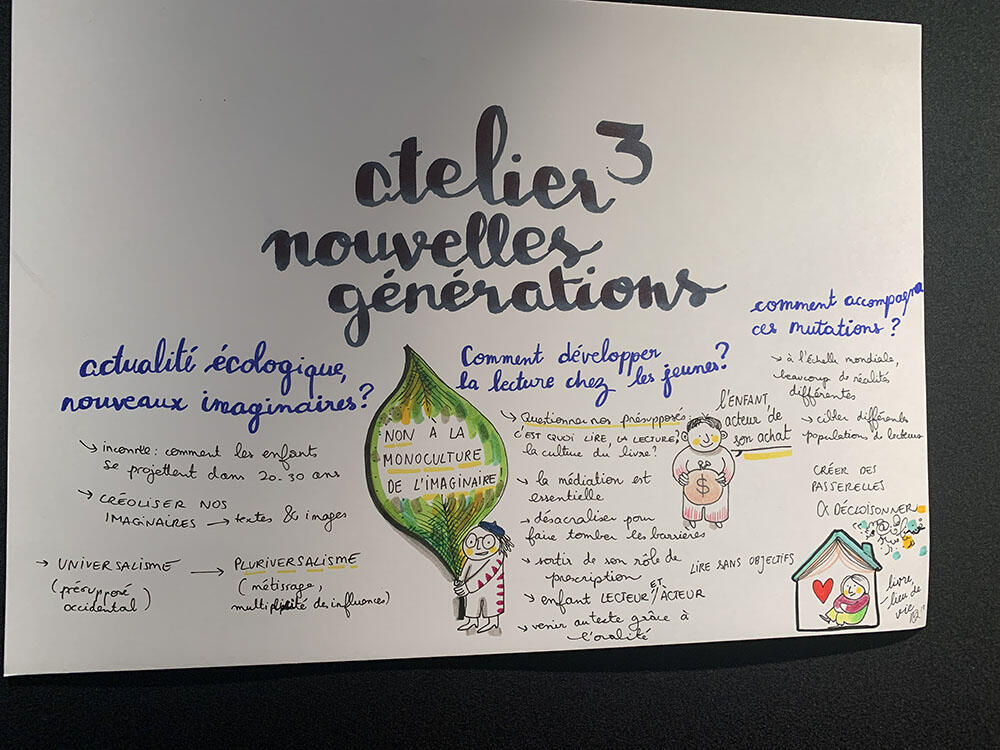 atelier 3
nouvelles
générations
actualité écologique,
nouveaux imaginaires?
inconnue: comment les enfants
se projettent dans 20-30 ans
CRÉOLISER NOS
IMAGINAIRES → textes & images
UNIVERSALISME → PLURIVERSALISME
(présupposé
occidental)
(métissage,
multiplicité de influences)
NON À LA
MONOCULTURE
DE L'IMAGINAIRE
Comment développer
la lecture chez les jeunes?
Questionner nos présupposés
C'EST QUOI LIRE, LA LECTURE,
la culture du livre?
la médiation est
essentielle
désacraliser pour
faire tomber les barrières
sortir de son rôle de
prescription
enfant LECTEUR ET ACTEUR
venir au texte grâce à
l'oralité
l'ENFANT,
acteur de
son achat
$
LIRE SANS OBJECTIFS
comment accompagna
ces mutations?
à l'échelle mondiale,
beaucoup de réalités
différentes
cibler différentes
populations de lecteurs
CRÉER DES
PASSERELLES
DÉCLOISONNER
livre,
lieu de
vie